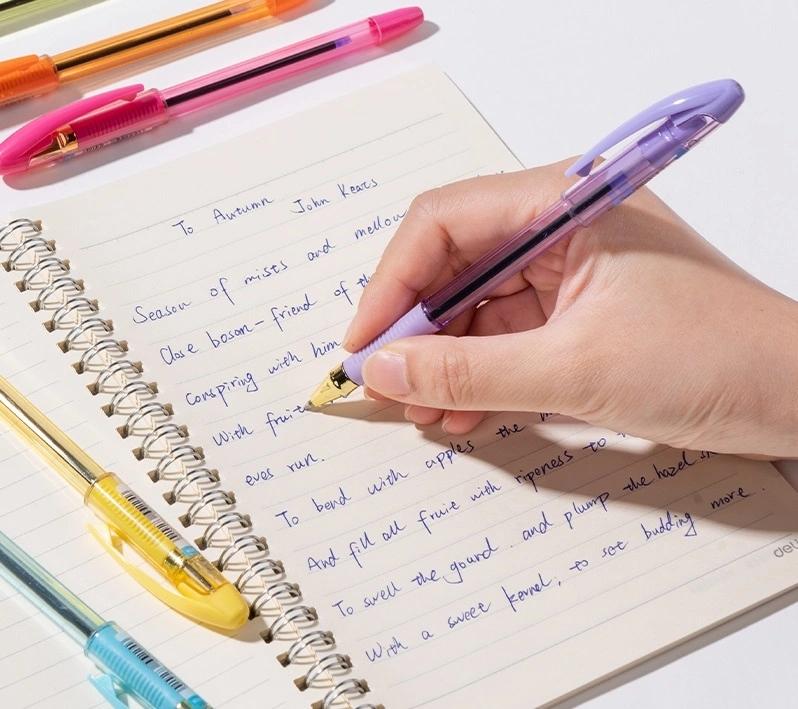 To Autumn John Keats
Season of mists and mellow
Close boson-friend of th
Conspiring with him
With fruit
eves run.
To bend with apples the
And fill all fruie with ripeness to
To swell the gourd. and plump the hazel
With a sweet kernel, to set budding more.